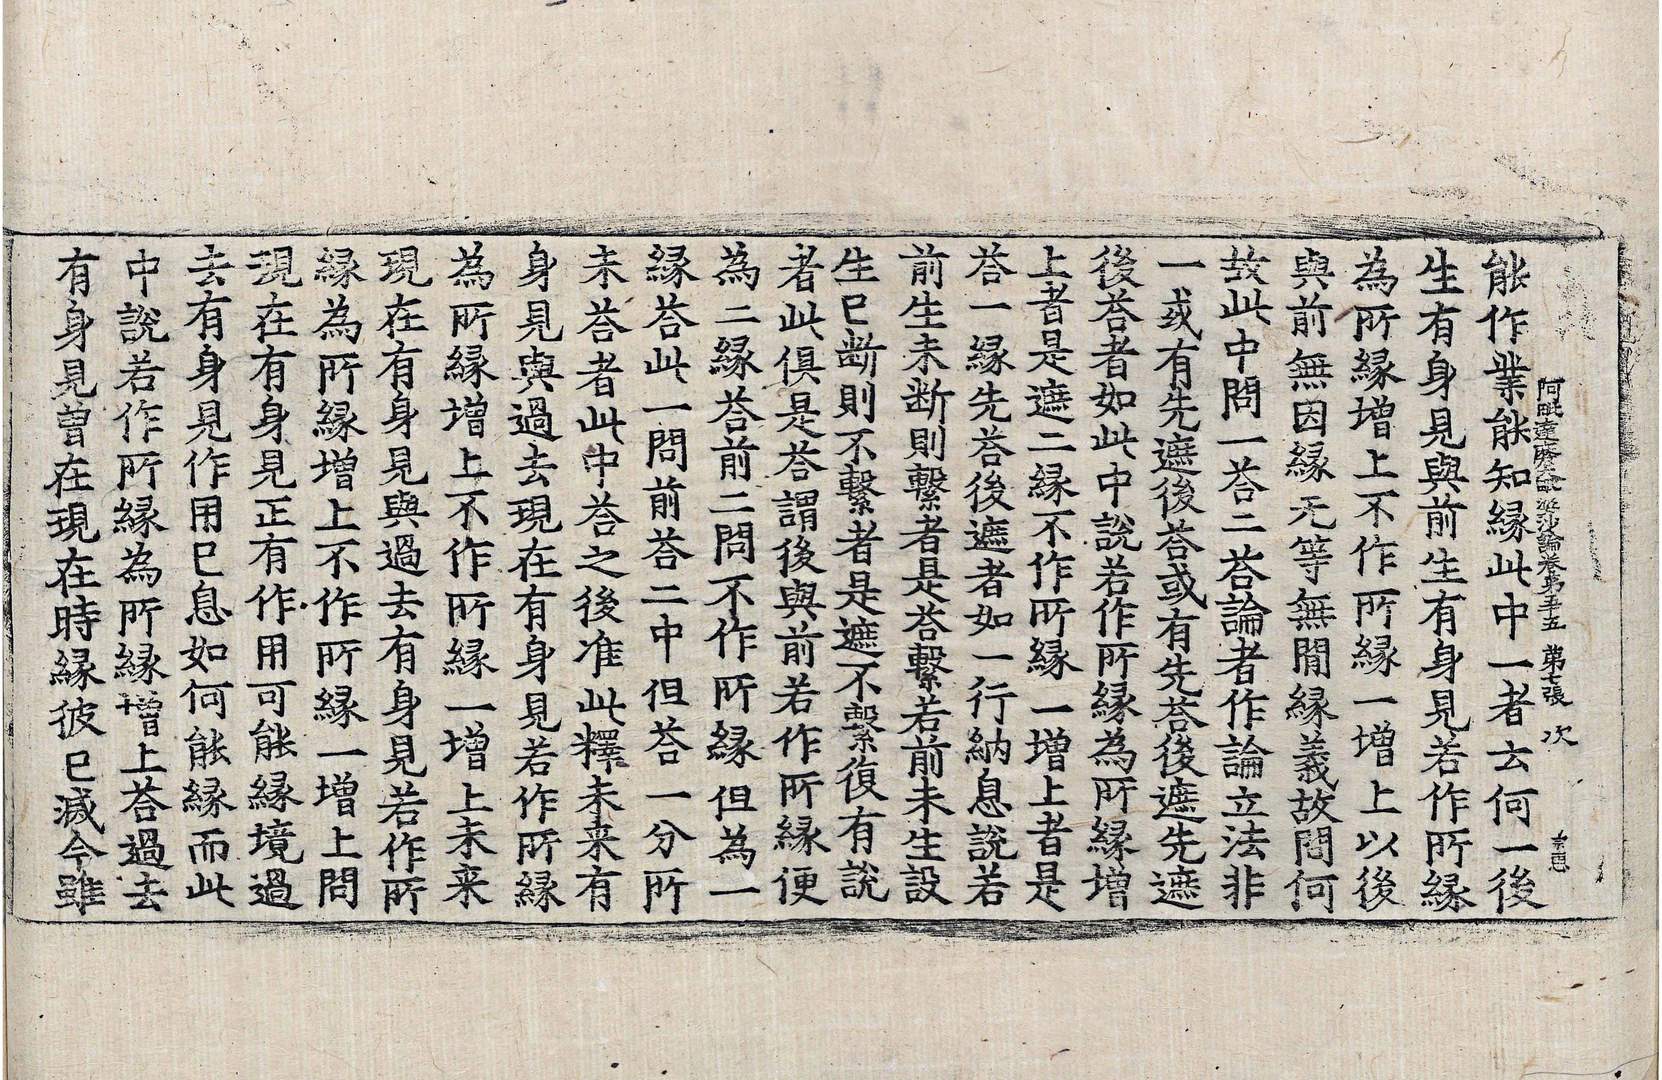 阿毗達磨大毗婆沙論卷第五十五 第七張 次
能作業能知縁此中一者去何一後
生有身見與前生有身見若作所縁
為所縁增上不作所縁一增上以後
與前無因縁无等無間縁義故問何
故此中問一荅二荅論者作論立法非
一或有先遮後荅或有先荅後遮先遮
後荅者如此中說若作所縁為所縁增
上者是遮二縁不作所縁一增上者是
荅一縁先荅後遮者如一行納息說若
前生未断則繫者是荅繫若前未生設
生巳断則不繫者是遮不繫復有說
者此俱是荅謂後與前若作所縁便
為二縁荅前二問不作所縁但為一
縁荅此一問前荅二中但荅一分所
未荅者此中荅之後准此釋未来有
身見與過去現在有身見若作所縁
為所縁增上不作所縁一增上未来
現在有身見與過去有身見若作所
縁為所縁增上不作所縁一增上問
現在有身見正有作用可能縁境過
去有身見作用巳息如何能縁而此
中說若作所縁為所縁增上荅過去
有身見曾在現在時縁彼巳滅今雖